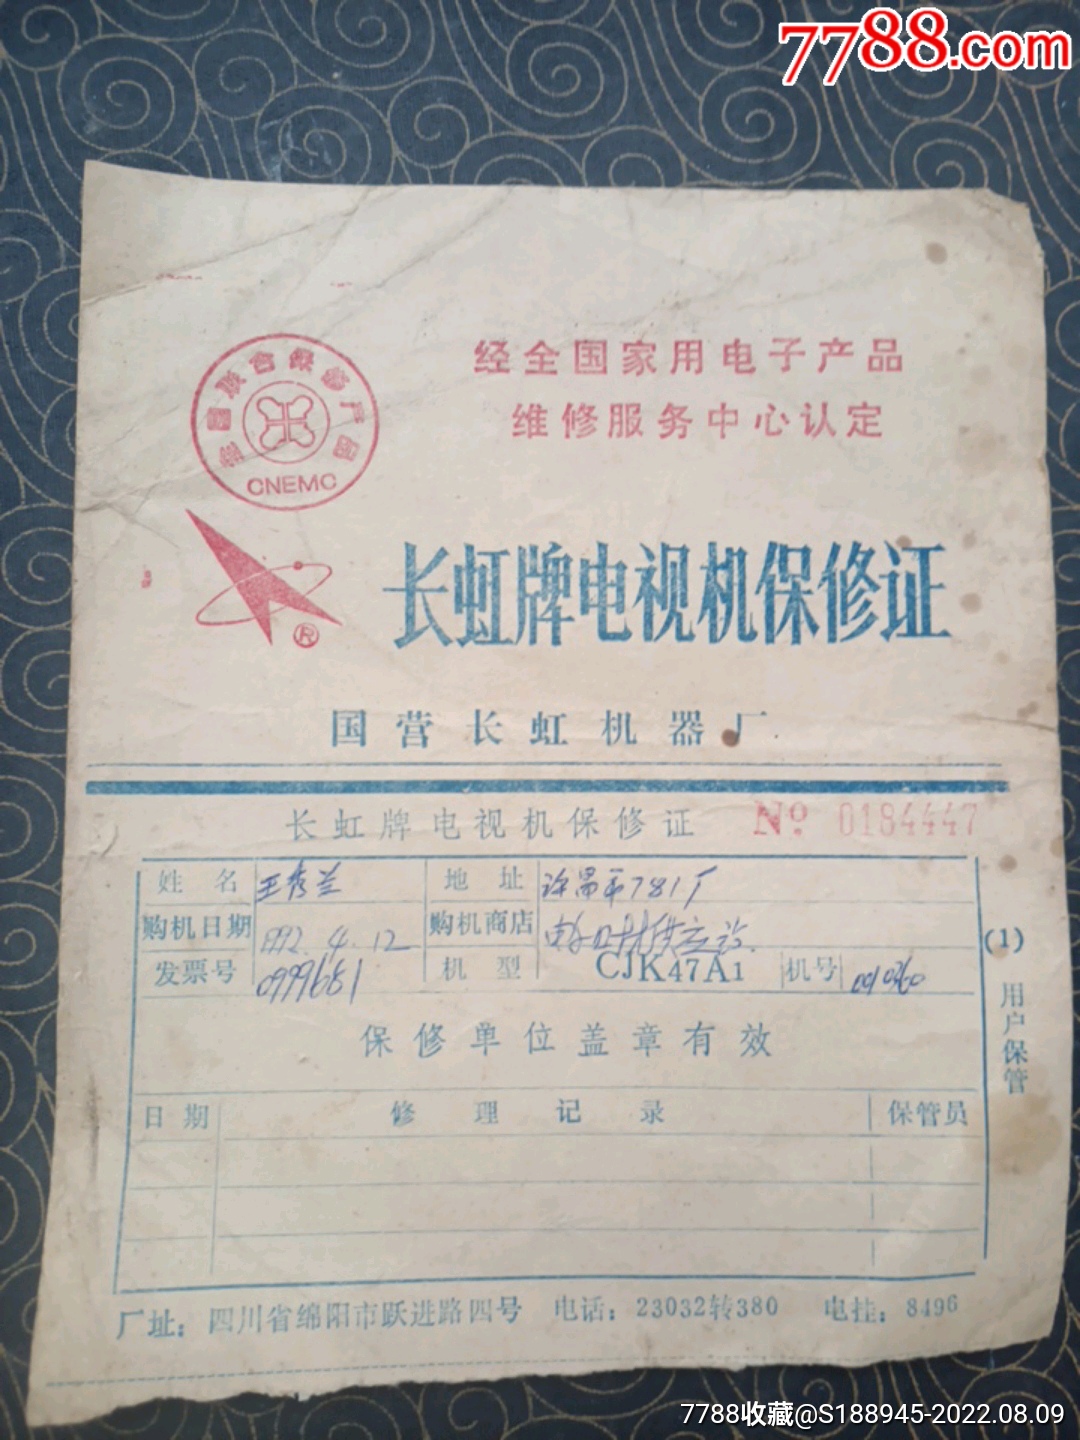 7788.com
经全国家用电子产品
维修服务中心认定
全国联合保修产品
CNEMC
®
长虹牌电视机保修证
国营长虹机器厂
长虹牌电视机保修证 No 0184447
姓名 王秀兰 地址 许昌市781厂
购机日期 1992.4.12 购机商店
发票号 0999681 机型 CJK47A1 机号
保修单位盖章有效
日期 修理记录 保管员
(1) 用户保管
厂址：四川省绵阳市跃进路四号 电话：23032转380 电挂：8496
7788收藏@S188945-2022.08.09